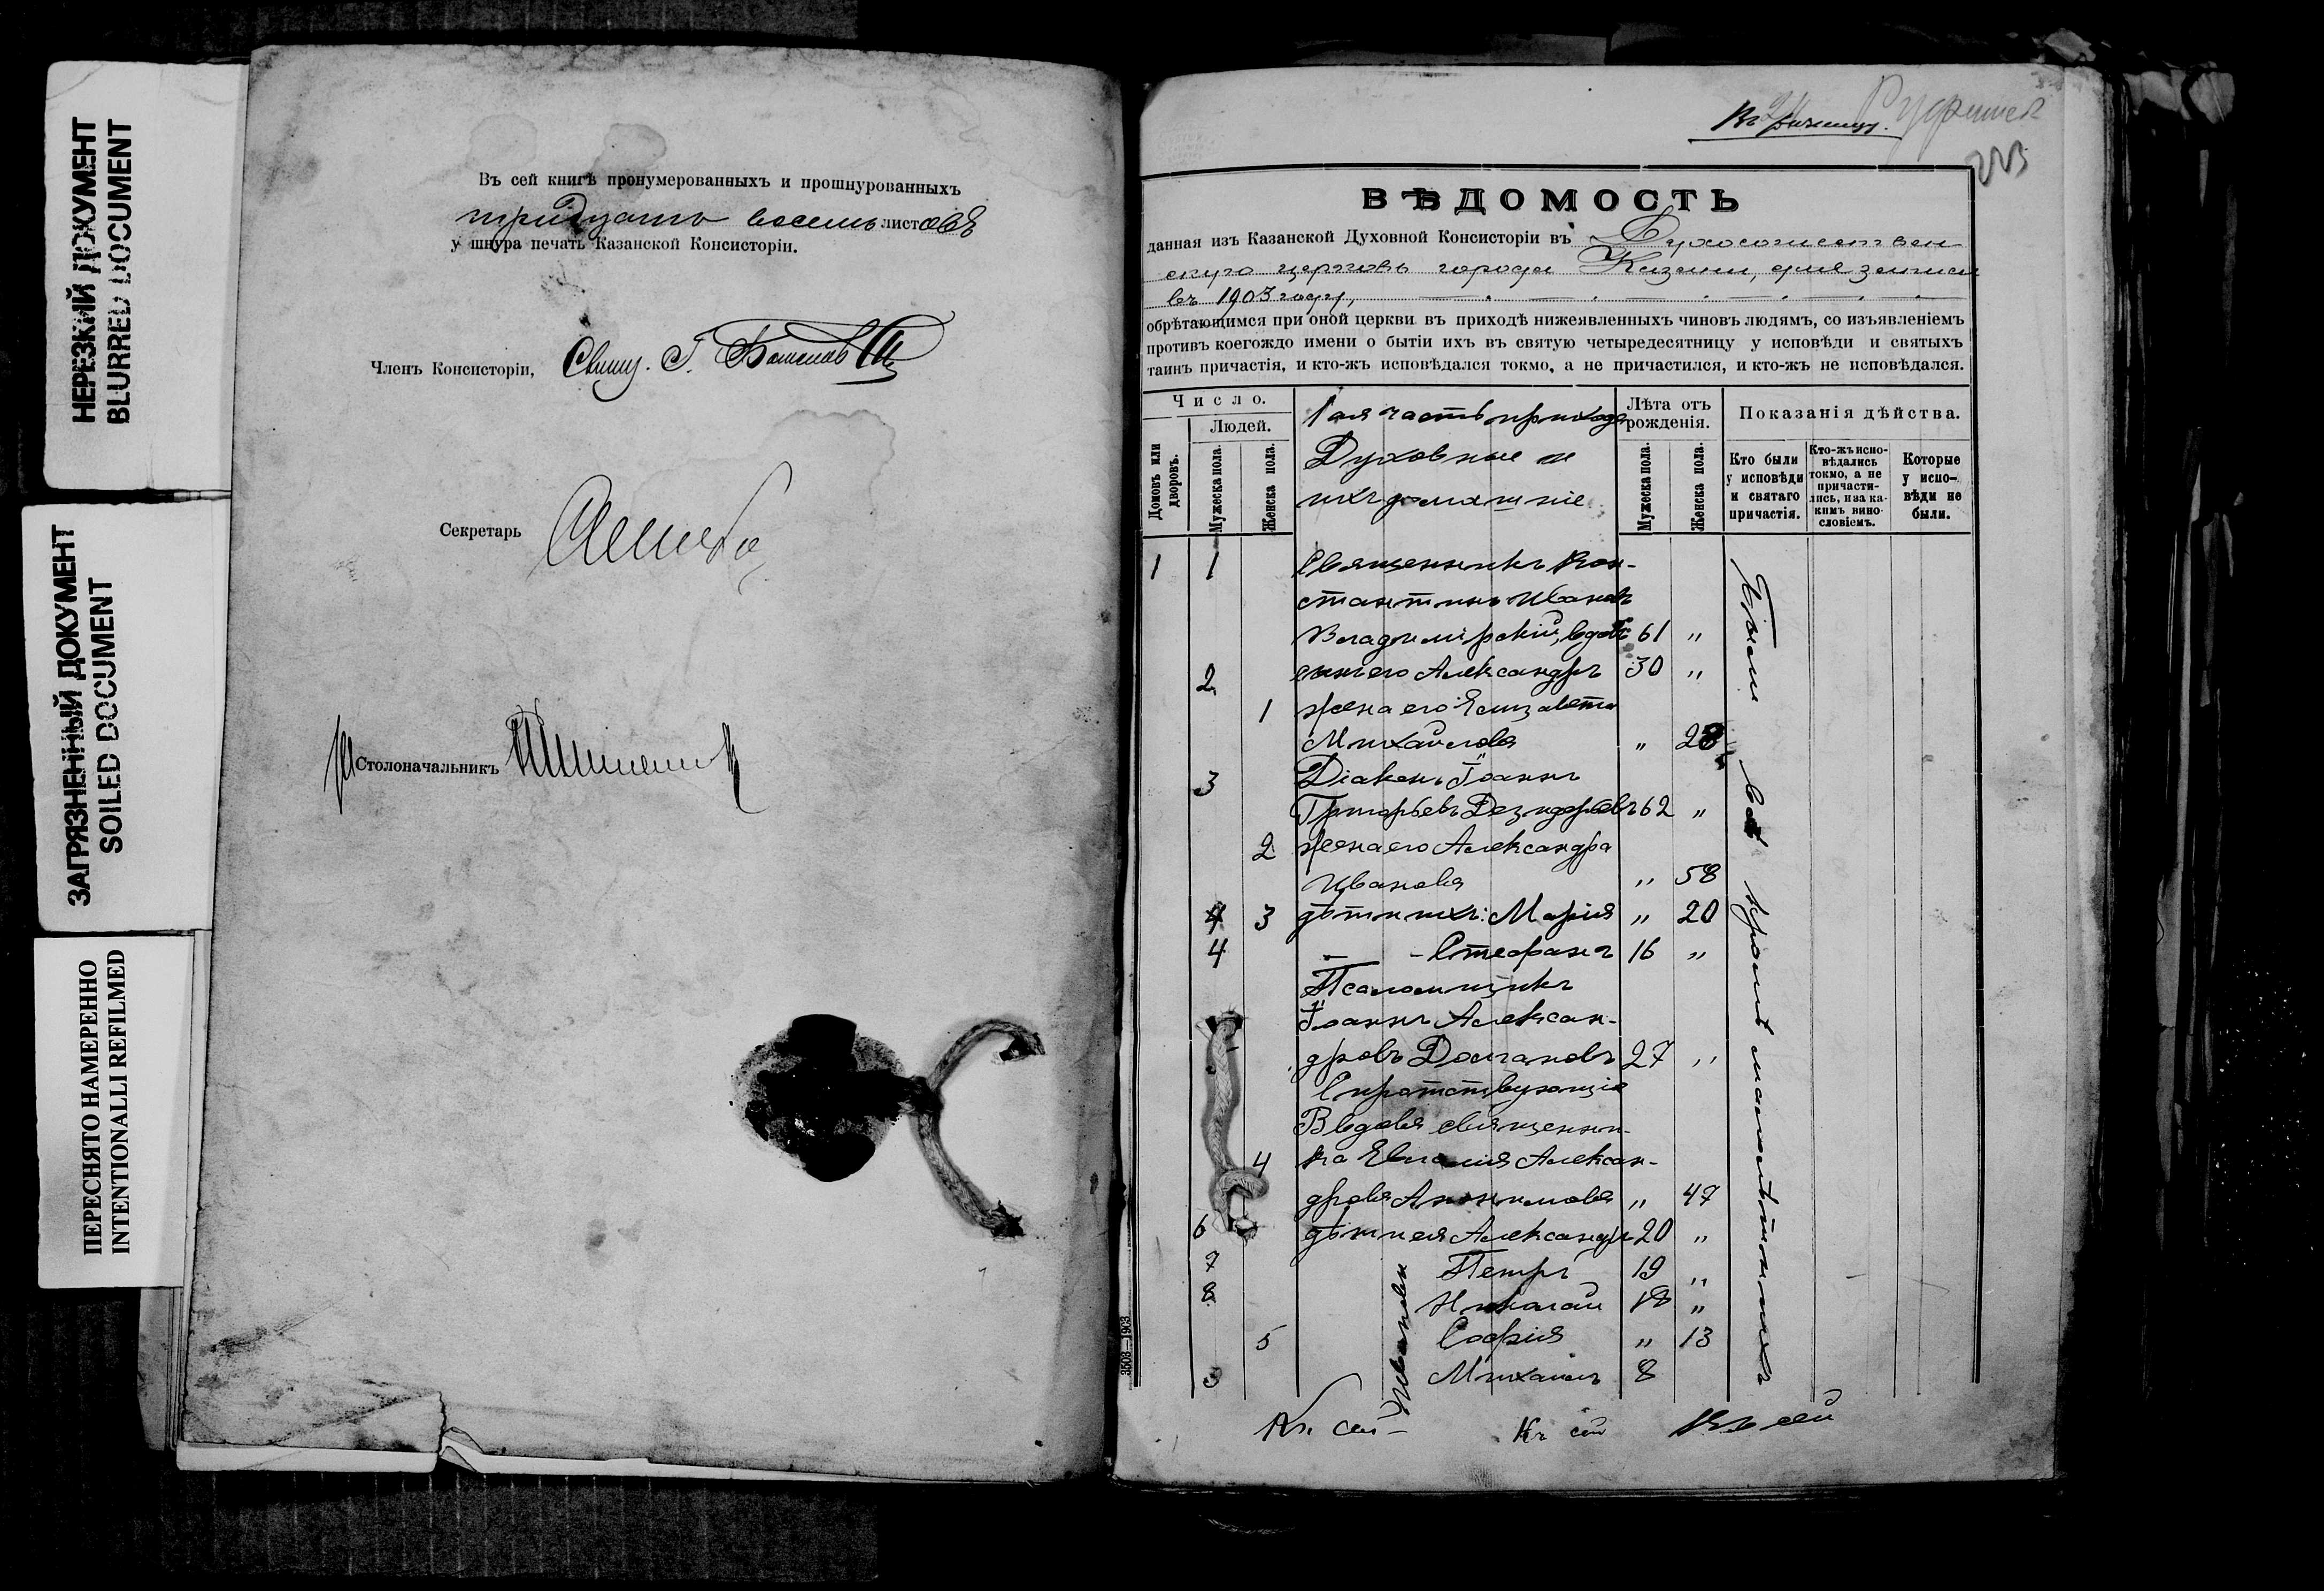 НЕРЕЗКИЙ ДОКУМЕНТ
BLURRED DOCUMENT
ЗАГРЯЗНЕННЫЙ ДОКУМЕНТ
SOILED DOCUMENT
ПЕРЕСНЯТО НАМЕРЕННО
INTENTIONALLI REFILMED
Въ сей книгѣ пронумерованныхъ и прошнурованныхъ
тридцать восемь листовъ
у шнура печать Казанской Консисторіи.
Членъ Консисторіи, Свящ. Г.
Секретарь
Столоначальникъ
ВѢДОМОСТЬ
данная изъ Казанской Духовной Консисторіи въ Духосошествен
скую церковь города Казани, для записи
въ 1903 году,
обрѣтающимся при оной церкви въ приходѣ нижеявленныхъ чиновъ людямъ, со изъявленіемъ
противъ коегождо имени о бытіи ихъ въ святую четыредесятницу у исповѣди и святыхъ
таинъ причастія, и кто-жъ исповѣдался токмо, а не причастился, и кто-жъ не исповѣдался.
Число.
Домовъ или дворовъ.
Людей.
Мужеска пола.
Женска пола.
1 ая часть прихода
Духовные и
ихъ домашніе
Лѣта отъ рожденія.
Мужеска пола.
Женска пола.
Показанія дѣйства.
Кто были у исповѣди и святаго причастія.
Кто-жъ исповѣдались токмо, а не причастились, и за каким винословіемъ.
Которые у исповѣди не были.
1 1 Священникъ Кон-
стантинъ Ивановъ
Владимірскій, вдовъ 61 „
2 сынъ его Александръ 30 „
1 жена его Елизавета
Михайлова „ 28
3 Діаконъ Іоаннъ
Григорьевъ Дезидерьевъ 62 „
2 жена его Александра
Иванова „ 58
4 3 дѣти ихъ: Марія „ 20
4 - - Стефанъ 16 „
Псаломщикъ
Іоаннъ Алексан-
дровъ Долгановъ 27 „
Сиротствующіе
Вдова священни-
4 ка Евгенія Алексан-
дрова „ 47
6 дѣти ея Александръ 20 „
7 Петръ 19 „
8 Николай 18 „
5 Софія „ 13
Михаилъ 8
Ивановы
Были всѣ кромѣ малолѣтнихъ
Къ сей
Къ сей
Къ сей
3503—1903